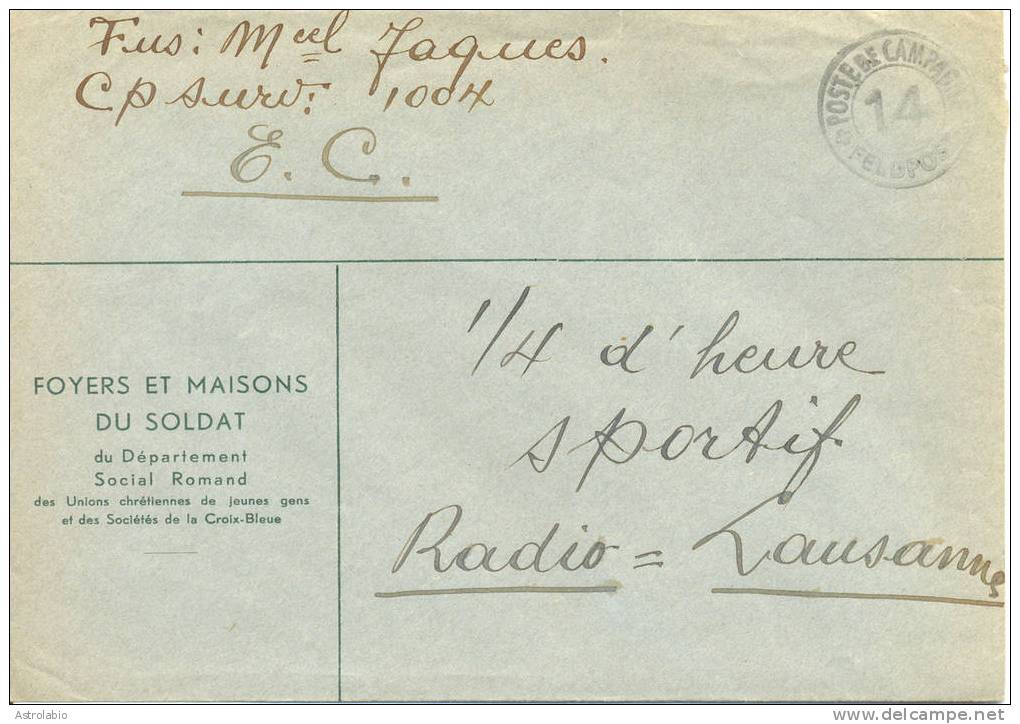 Fus: Mcel Jaques.
Cp surv. 1004
E. C.
POSTE DE CAMPAGNE
14
FELDPOST
FOYERS ET MAISONS
DU SOLDAT
du Département
Social Romand
des Unions chrétiennes de jeunes gens
et des Sociétés de la Croix-Bleue
1/4 d'heure
sportif.
Radio = Lausanne
Astrolabio
www.delcampe.net